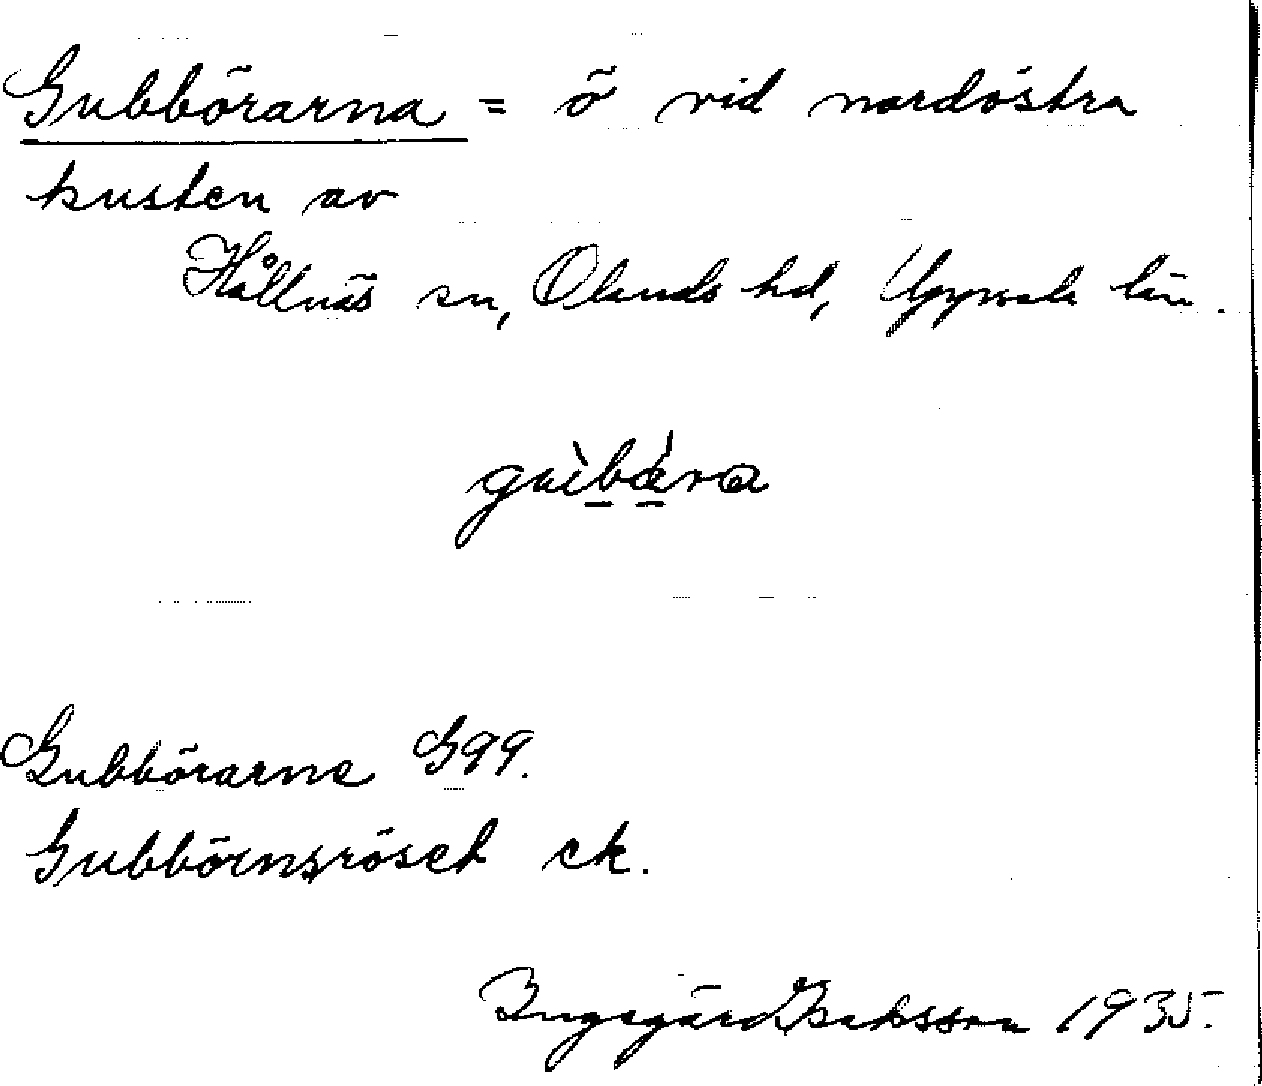 Gubbörarna = ö vid nordöstra
kusten av
Hållnäs sn, Olands hd, Uppsala län.
Gubbörarne G99.
Gubbörnsröset ek.
Ingegärd Isaksson 1935.